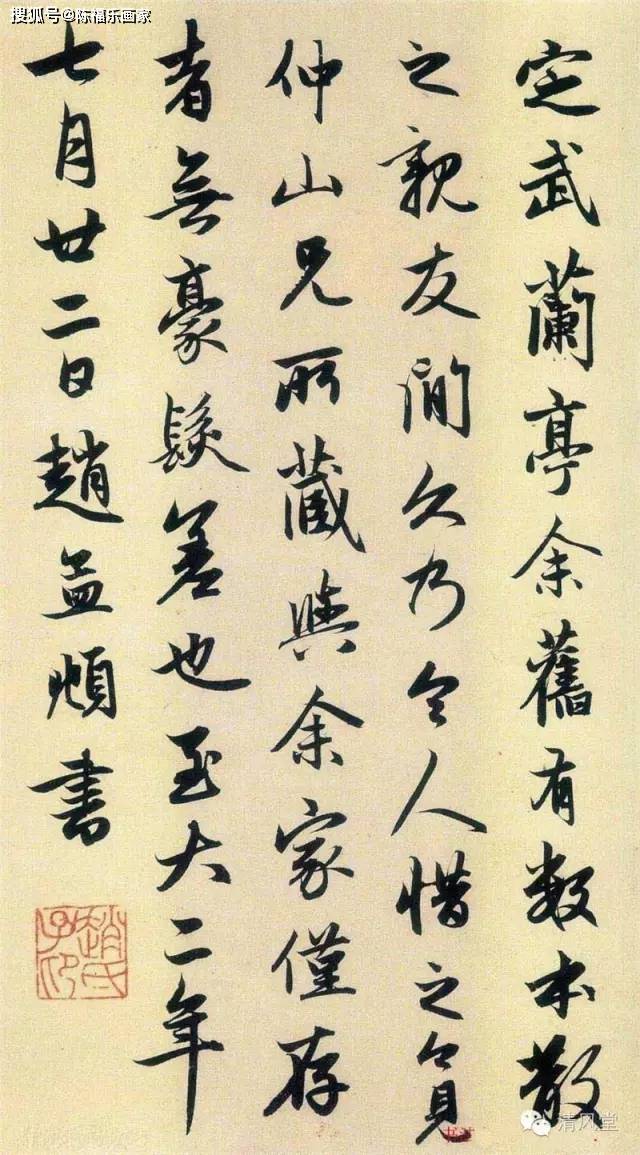 搜狐号@陈福乐画家
定武蘭亭余舊有數本散
之親友間久乃令人惜之今見
仲山兄所藏與余家僅存
者無豪髮差也至大二年
七月廿二日趙孟頫書
趙氏子昂
清风堂